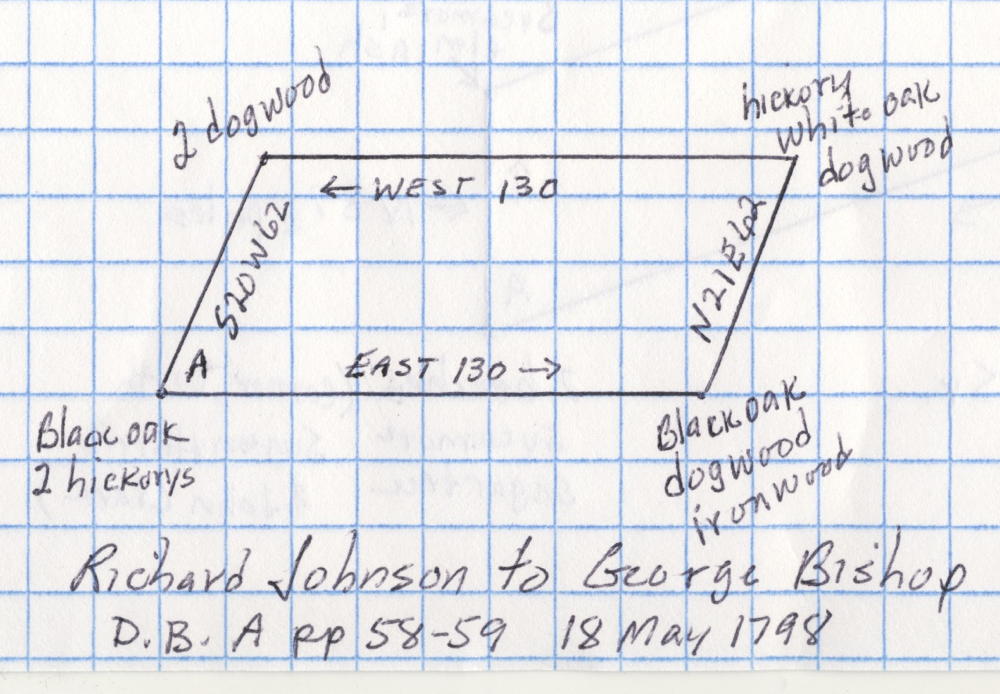 2 dogwood
hickory
white oak
dogwood
← WEST 130
S20W62
N21E62
A
EAST 130 →
Black oak
2 hickorys
Black oak
dogwood
ironwood
Richard Johnson to George Bishop
D.B. A pp 58-59 18 May 1798